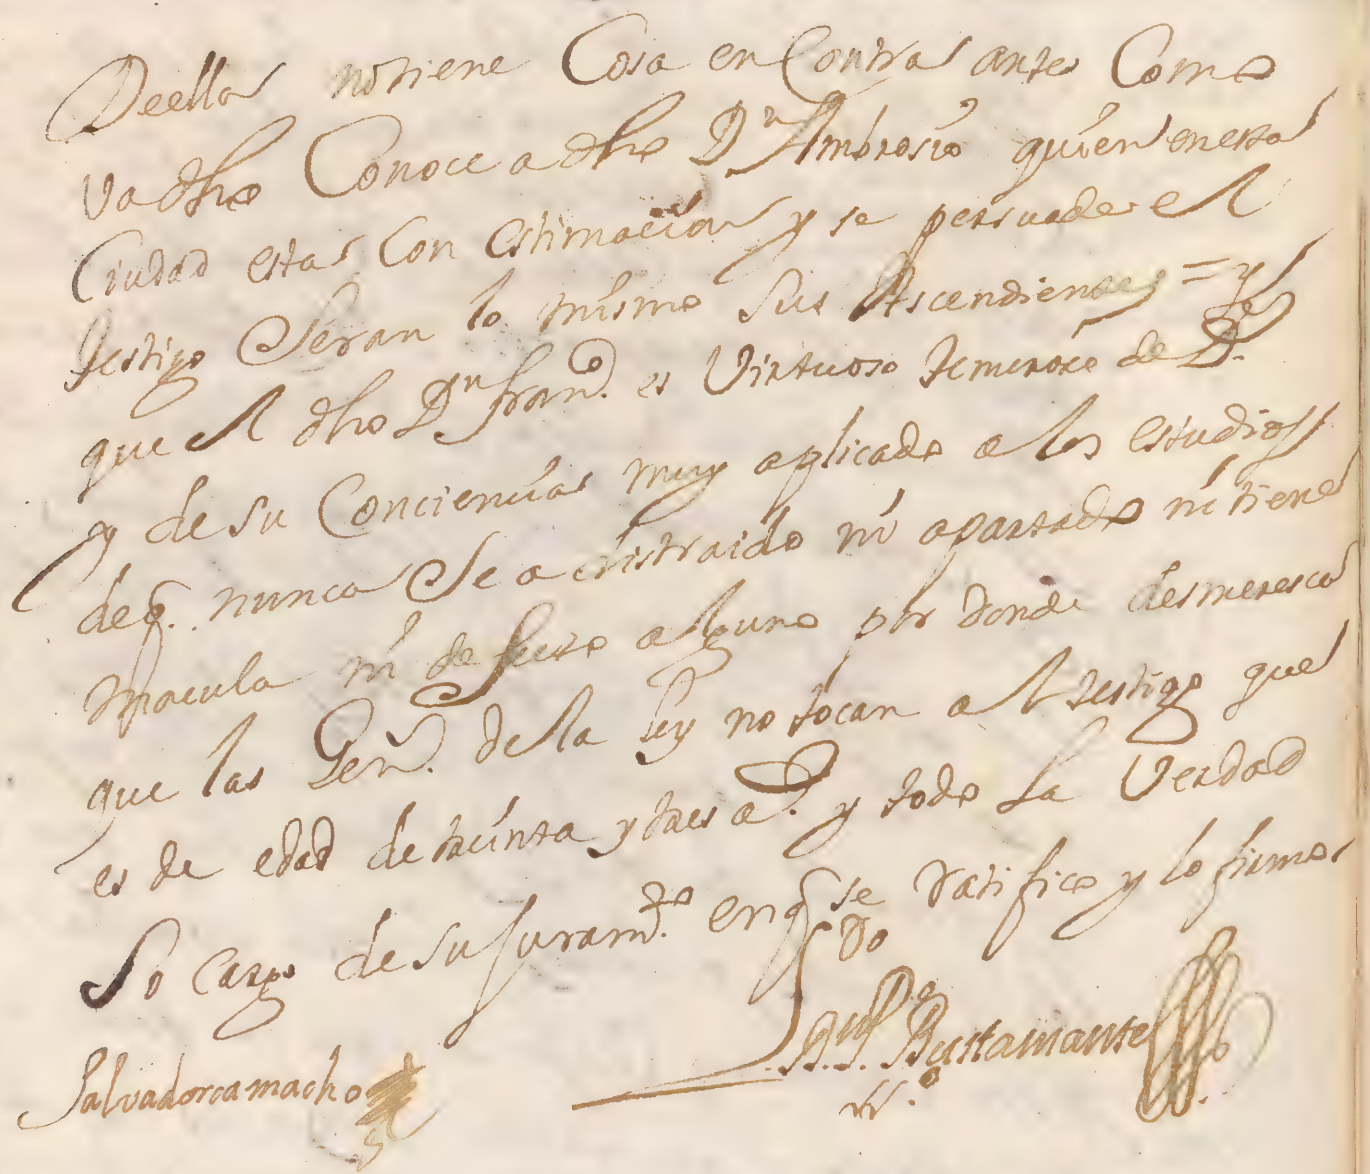 De ella no tiene Cosa en Contra antes Como
va dho Conoce a dho Dn Ambrosio quien en esta
Ciudad esta Con estimacion y se persuade el
testigo Seran lo mismo Sus Ascendientes = y
que el dho Dn Franco. es Virtuoso temeroso de Ds.
y de su Conciencia muy aplicado a los estudios
de q. nunca Se a distraido ni apartado ni tiene
macula ni defecto alguno por donde desmeresca
que las Gen.s de la Ley no tocan al testigo que
es de edad de treinta y tres as. y todo la Verdad
So cargo de su Juramto. en q se ratifico y lo firmo
Do
Bustamante
Salvador camacho